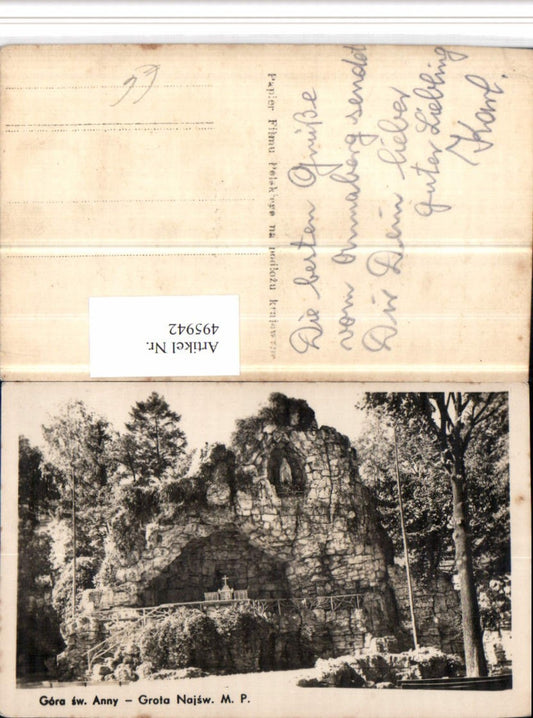 33
Papier Filmu Polskiego na podłożu krajowem
Die besten Grüße
vom Annaberg sendet
Dir Dein lieber
guter Liebling
Karl.
Artikel Nr.
495942
Góra św. Anny – Grota Najśw. M. P.